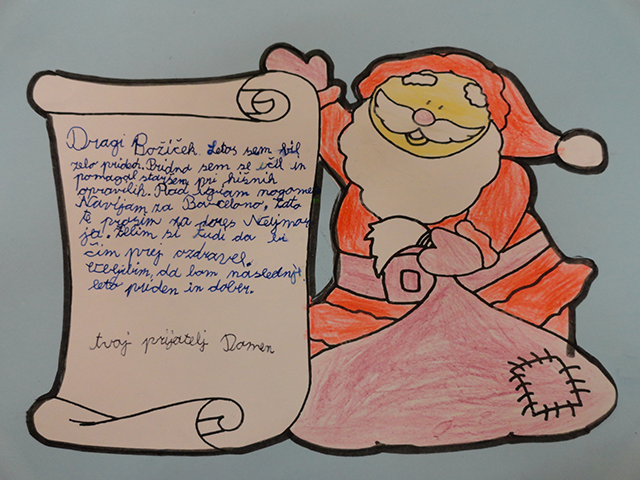 Dragi Božiček. Letos sem bil
zelo priden. Pridno sem se učil in
pomagal staršem pri hišnih
opravilih. Rad igram nogomet
Navijam za Barcelono. Zato
te prosim za dres Nejmar
ja. Želim si tudi da bi
čim prej ozdravel.
Obljubim, da bom naslednje
leto priden in dober.
tvoj prijatelj Damen